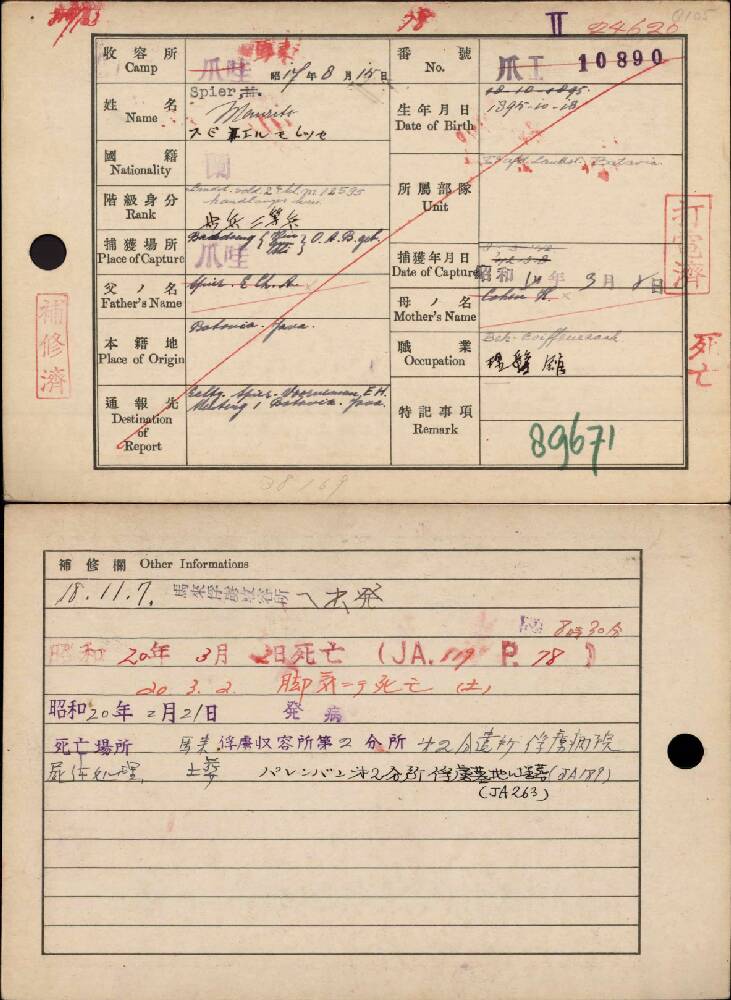 78 II 24620
收容所 Camp 爪哇 昭17年8月15日
番號 No. 爪I 10890
姓名 Name Spier, M.
Maurits
スピエル モレツセ
生年月日 Date of Birth 18-10-1895
1895-10-18
國籍 Nationality 蘭
階級身分 Rank
所屬部隊 Unit Batavia
捕獲場所 Place of Capture Bandoeng 爪哇
捕獲年月日 Date of Capture 昭和17年3月8日
父ノ名 Father's Name Spier. E. Ch. A.
母ノ名 Mother's Name Cohen R.
本籍地 Place of Origin Batavia. Java.
職業 Occupation
通報先 Destination of Report Spier-Vooreneman, E.H.
Batavia. Java.
特記事項 Remark 89671
補修濟
打電濟
死亡
補修欄 Other Informations
18.11.7. 馬来俘虜収容所ヘ出発
8時30分
昭和20年3月2日死亡 (JA.119 P.78)
20.3.2. 脚気ニテ死亡
昭和20年2月21日 発病
死亡場所 馬来俘虜収容所第2分所 俘虜病院
屍体処理 土葬 パレンバン第2分所俘虜墓地ニ埋葬(JA189)
(JA263)